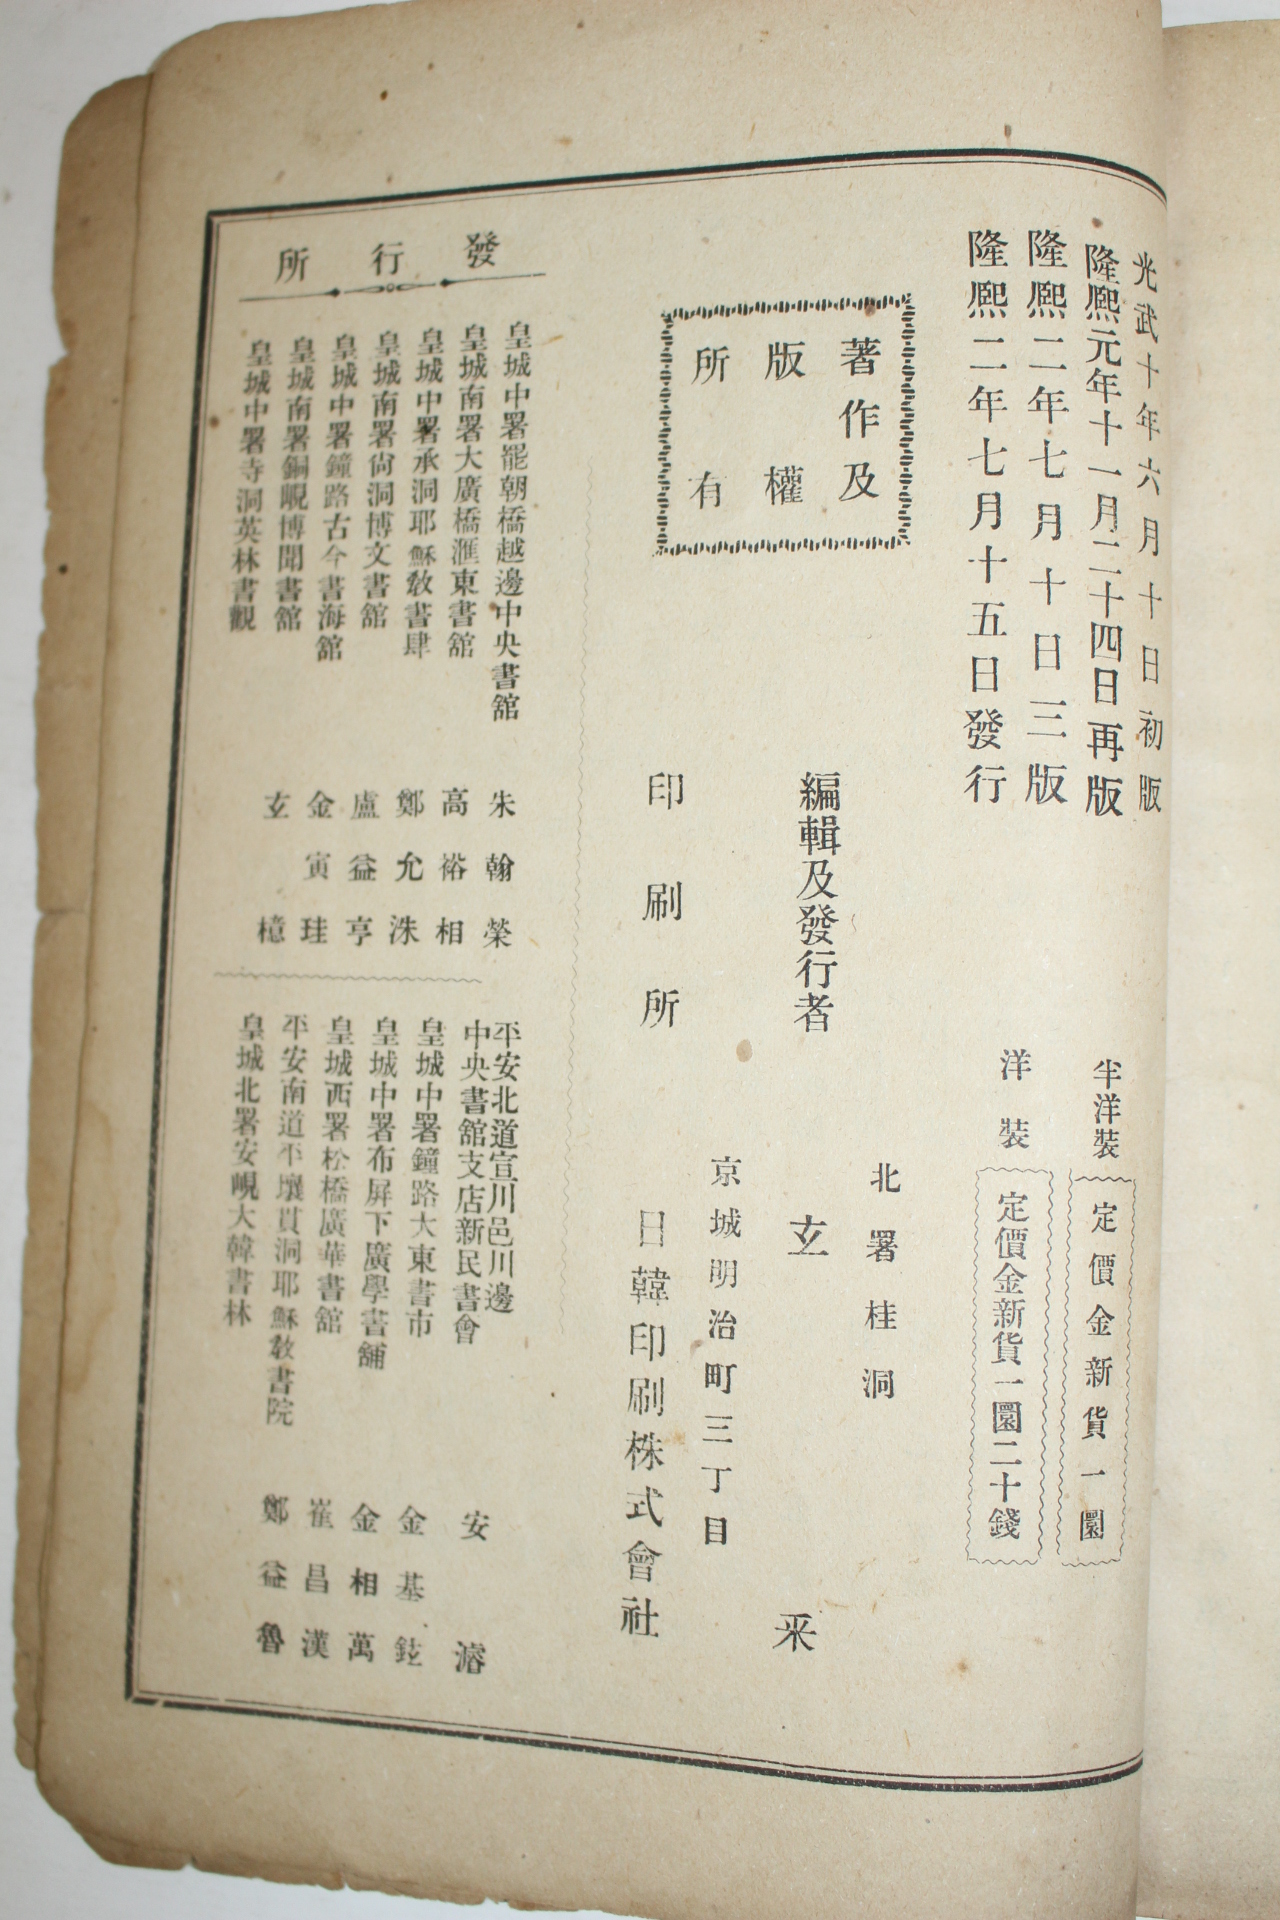 光武十年六月十日初版
隆熙元年十一月二十四日再版
隆熙二年七月十日三版
隆熙二年七月十五日發行
半洋裝
定價金新貨一圜
洋裝
定價金新貨一圜二十錢
著作及
版權
所有
編輯及發行者
北署桂洞
玄采
印刷所
京城明治町三丁目
日韓印刷株式會社
發行所
皇城中署罷朝橋越邊中央書舘
朱翰榮
皇城南署大廣橋滙東書舘
高裕相
皇城中署承洞耶穌敎書肆
鄭允洙
皇城南署尙洞博文書舘
盧益亨
皇城中署鐘路古今書海舘
金寅珪
皇城南署銅峴博聞書舘
皇城中署寺洞英林書觀
玄檍
平安北道宣川邑川邊
中央書舘支店新民書會
安濬
皇城中署鐘路大東書市
金基鉉
皇城中署布屛下廣學書舖
金相萬
皇城西署松橋廣華書舘
崔昌漢
平安南道平壤貫洞耶穌敎書院
皇城北署安峴大韓書林
鄭益魯